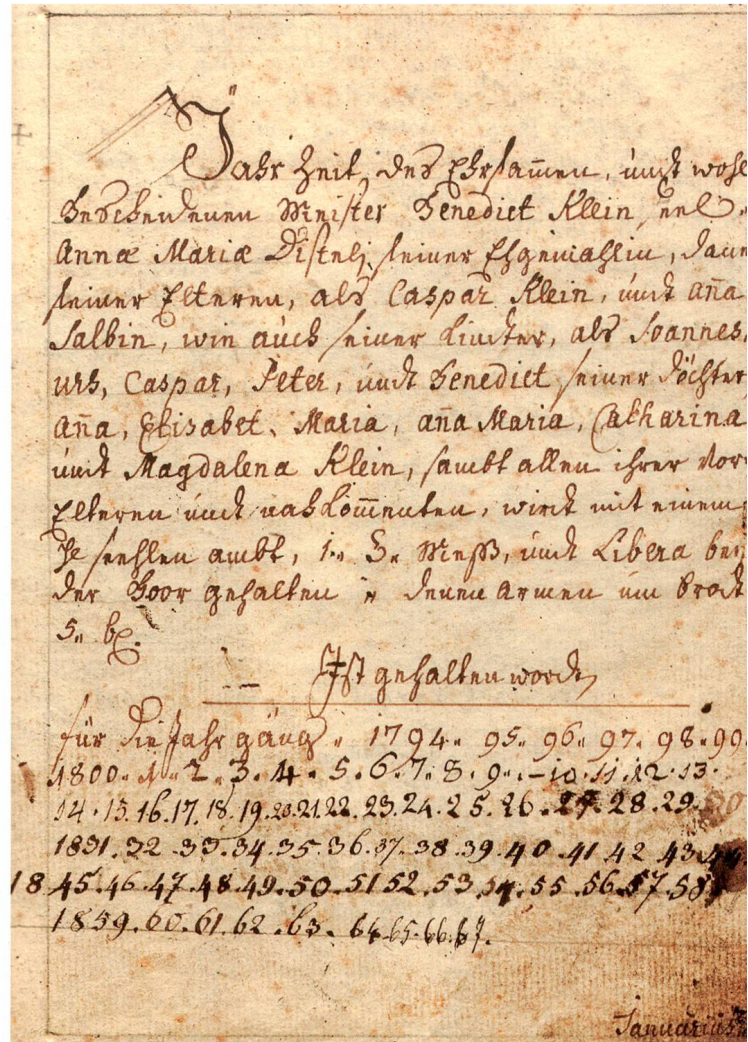 Jahr Zeit, des Ehrsamen, undt wohl
bescheidenen Meister Benedict Klein,
Annæ Mariæ Distelj, seiner Ehgemahlin, dane
seiner Elteren, als Caspar Klein, undt aña
Salbin, wie auch seiner Kindter, als Joannes,
urs, Caspar, Peter, undt Benedict seiner Döchter,
aña, Elisabet, Maria, aña Maria, Catharina
undt Magdalena Klein, sambt allen ihrer Vor-
Elteren undt nahkom̄enten, wirdt mit einem
ambt, 1. H. Mess, undt Libera bey
der Boor gehalten denen armen um brodt
5. bz.
Ist gehalten wordē
für die Jahr gäng. 1794. 95. 96. 97. 98. 99.
1800. 1. 2. 3. 4. 5. 6. 7. 8. 9. -10. 11. 12. 13.
14. 15. 16. 17. 18. 19. 20. 21. 22. 23. 24. 25. 26. 27. 28. 29. 30
1831. 32. 33. 34. 35. 36. 37. 38. 39. 40. 41 42 43. 44
18 45. 46. 47. 48. 49. 50. 51 52. 53. 54. 55. 56. 57. 58
1859. 60. 61. 62. 63. 64. 65. 66. 67.
Januarius